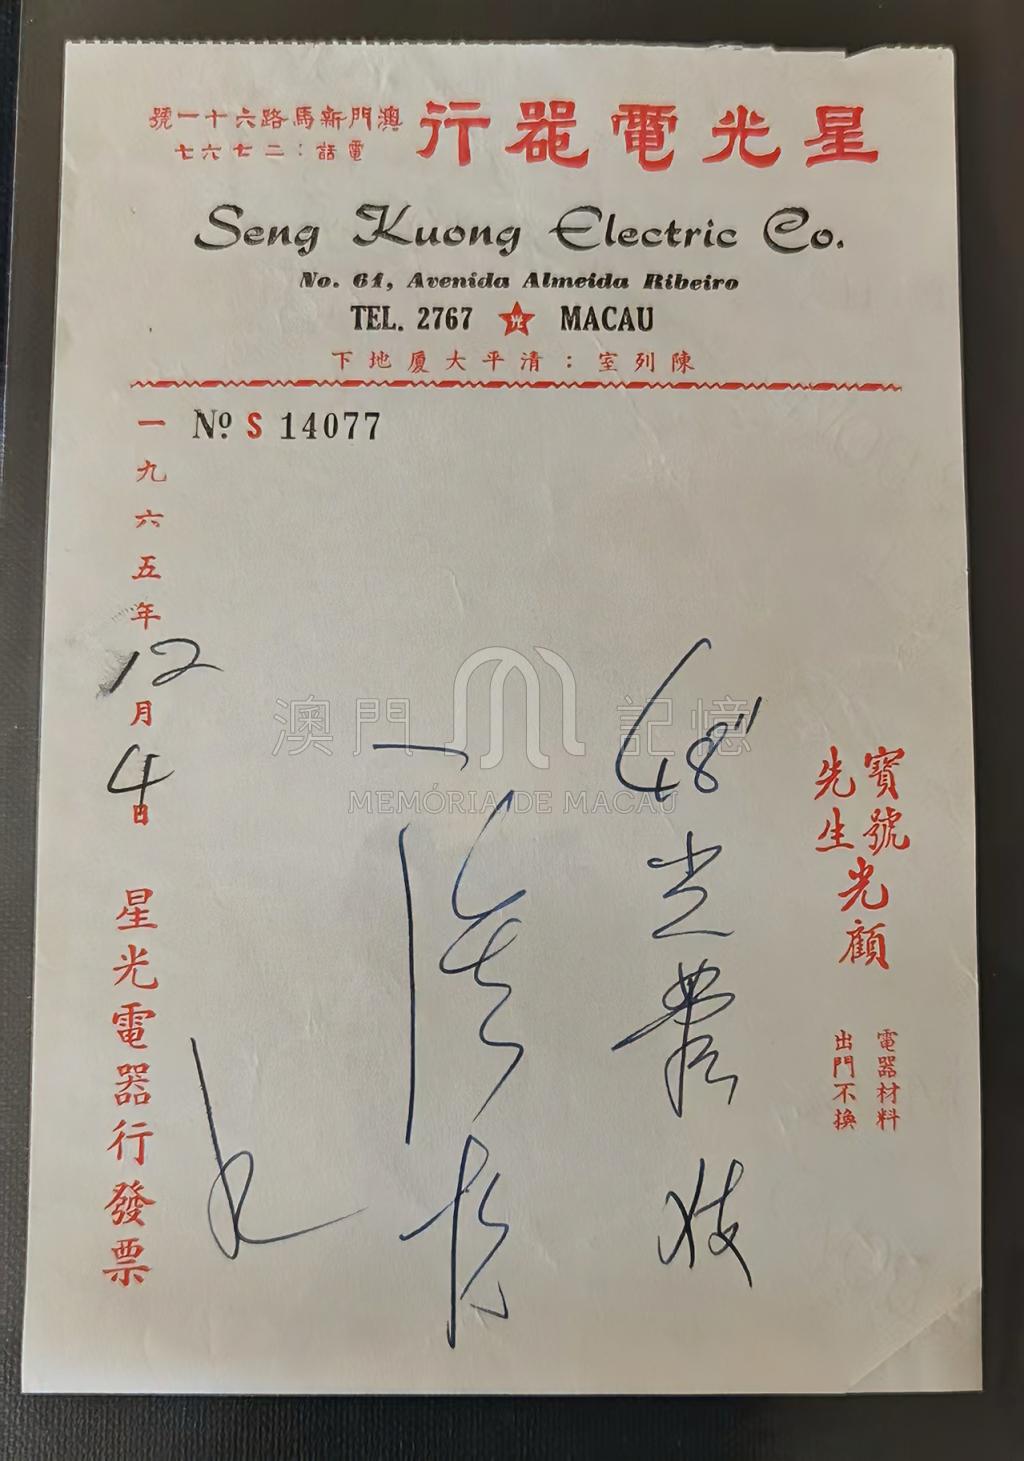 星光電器行
澳門新馬路六十一號
電話：二七六七
Seng Kuong Electric Co.
No. 61, Avenida Almeida Ribeiro
TEL. 2767 光 MACAU
陳列室：清平大廈地下
No. S 14077
寶號
先生
光顧
電器材料
出門不換
48"光管
一九六五年12月4日
星光電器行發票
澳門記憶
MEMÓRIA DE MACAU